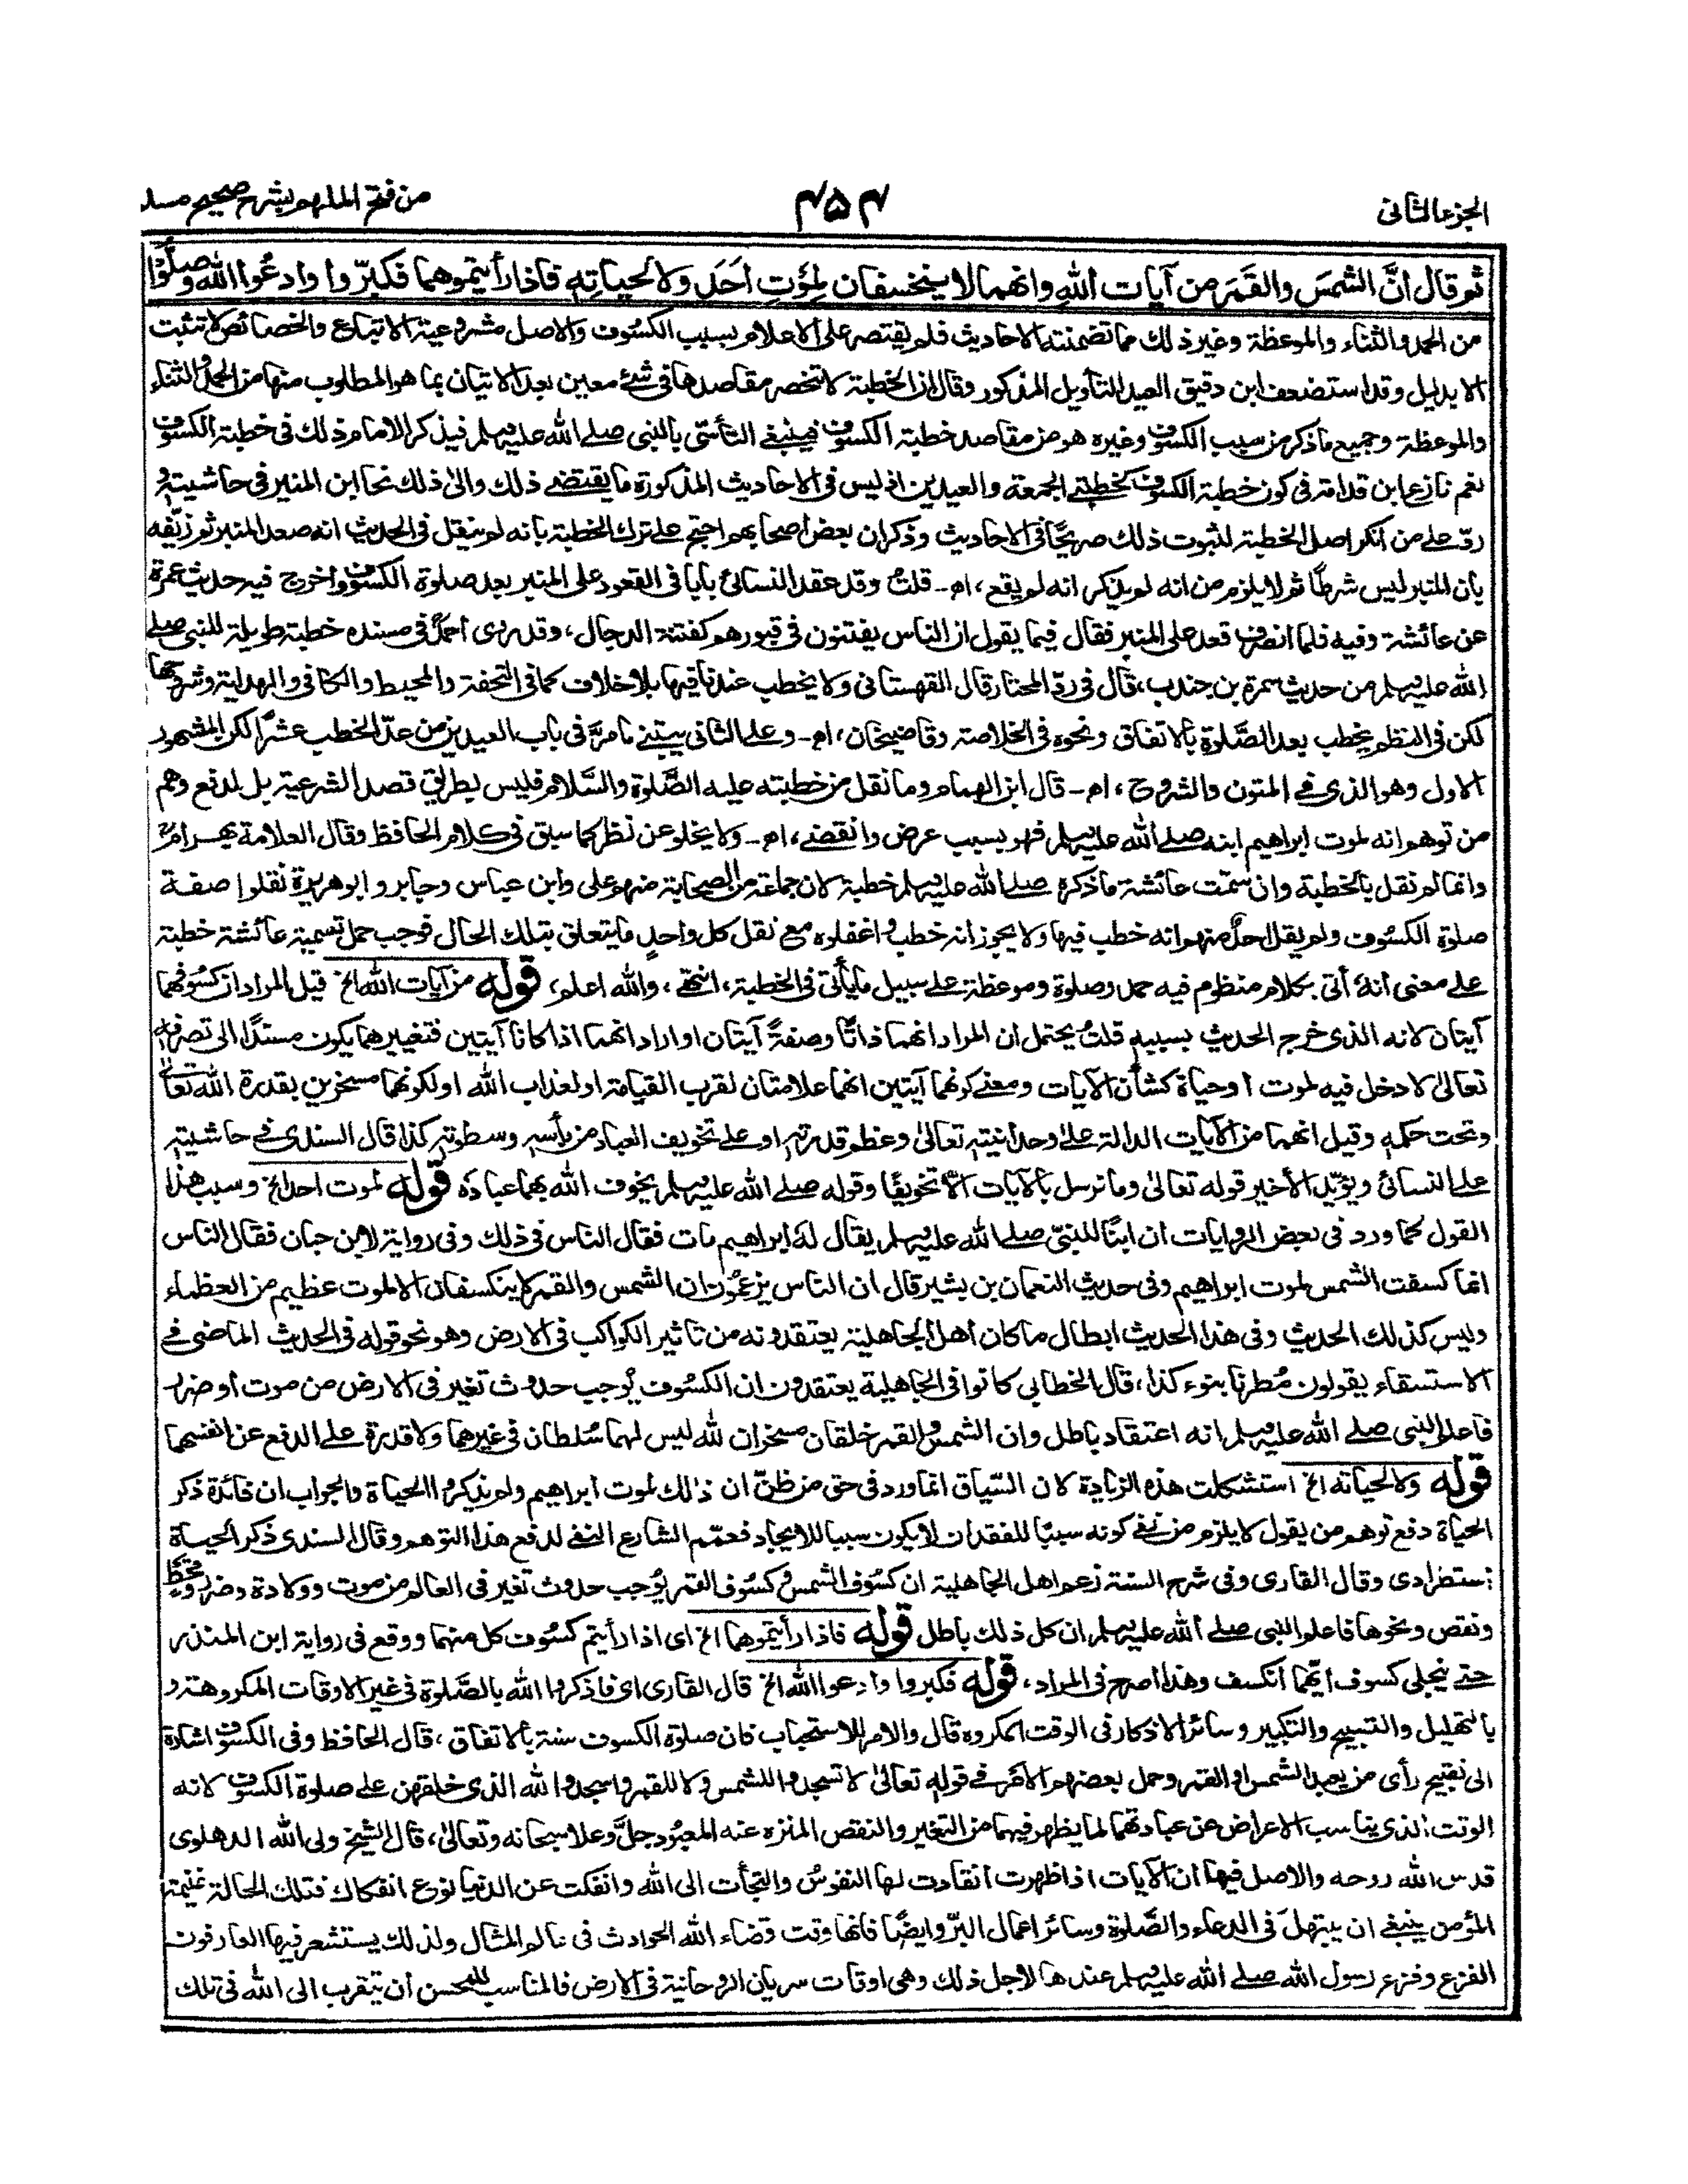 الجزء الثانى
۴۵۴
من فتح الملهم بشرح صحيح مسلم
ثم قال انَّ الشمسَ والقَمَرَ من آيات اللهِ وانهما لا ينخسفان لِمَوْتِ اَحَدٍ ولا لحياتِهٖ فاذا رأيتموهما فكبرّوا وادعُوا الله وصلُّوْا
من الحمد والثناء والموعظة وغير ذلك مما تضمنته الاحاديث فلم يقتصر على الاعلام بسبب الكسُوف والاصل مشروعية الاتباع والخصائص لا تثبت
الا بدليل وقد استضعف ابن دقيق العيد التأويل المذكور وقال ان الخطبة لا تنحصر مقاصدها فى شئ معين بعد الاتيان بما هو المطلوب منها من الحمد والثناء
والموعظة وجميع ما ذكر من سبب الكسوف وغيره هو من مقاصد خطبة الكسوف فينبغى التأسّى بالنبى صلى الله عليه وسلم فيذكر الامام ذلك فى خطبة الكسوف
نعم نازع ابن قدامة فى كون خطبة الكسوف كخطبتى الجمعة والعيدين اذ ليس فى الاحاديث المذكورة ما يقتضى ذلك والىٰ ذلك نحا ابن المنير فى حاشيته و
ردّ على من انكر اصل الخطبة لثبوت ذلك صريحًا فى الاحاديث وذكر ان بعض اصحابهم احتج على ترك الخطبة بانه لم ينقل فى الحديث انه صعد المنبر ثم زيّفه
بان المنبر ليس شرطًا ثم لا يلزم من انه لم يذكر انه لم يقع، اھ۔ قلتُ وقد عقد النسائى بابا فى القعود على المنبر بعد صلوة الكسوف واخرج فيه حديث عمرة
عن عائشة وفيه فلما انصرف قعد على المنبر فقال فيما يقول ان الناس يفتنون فى قبورهم كفتنة الدجال، وقد روى احمد فى مسنده خطبة طويلة للنبى صلى
الله عليه وسلم من حديث سمرة بن جندب، قال فى ردّ المحتار قال القهستانى ولا يخطب عندنا فيها بلا خلاف كما فى التحفة والمحيط والكافى والهداية وشروحها
لكن فى النظم يخطب بعد الصَّلوة بالاتفاق ونحوه فى الخلاصة وقاضيخان، اھ۔ وعلى الثانى يبتنى ما مرّ فى باب العيدين من عدّ الخطب عشرًا لكن المشهور
الاول وهو الذى فى المتون والشروح، اھ۔ قال ابن الهمام وما نقل من خطبته عليه الصَّلوة والسَّلام فليس بطريق قصد الشرعية بل لدفع وهم
من توهم انه لموت ابراهيم ابنه صلى الله عليه وسلم فهو بسبب عرض وانقضى، اھ۔ ولا يخلو عن نظر كما سبق فى كلام الحافظ وقال العلامة بهرام
وانما لم نقل بالخطبة وان سمّت عائشة ما ذكره صلى الله عليه وسلم خطبة لان جماعة من الصحابة منهم على وابن عباس وجابر وابو هريرة نقلوا صفة
صلوة الكسوف ولم يقل احدٌ منهم انه خطب فيها ولا يجوز انه خطب واغفلوه مع نقل كل واحدٍ ما يتعلق بتلك الحال فوجب حمل تسمية عائشة خطبة
على معنى انهٗ أتى بكلام منظوم فيه حمد وصلوة وموعظة على سبيل ما يأتى فى الخطبة، انتهى، والله اعلم، قوله من آيات الله الخ قيل المراد ان كسوفهما
آيتان لانه الذى خرج الحديث بسببه قلتُ يحتمل ان المراد انهما ذاتًا وصفةً آيتان او اراد انهما اذا كانا آيتين فتغييرهما يكون مستندًا الى تصرفه
تعالىٰ لا دخل فيه لموت او حياة كشأن الآيات ومعنى كونهما آيتين انهما علامتان لقرب القيامة او لعذاب الله او لكونهما مسخرين بقدرة الله تعالىٰ
وتحت حكمهٖ وقيل انهما من الآيات الدالة على وحدانيته تعالىٰ وعظم قدرته او على تخويف العباد من بأسه وسطوته كذا قال السندى فى حاشيته
على النسائى ويؤيّد الأخير قوله تعالىٰ وما نرسل بالآيات الّا تخويفًا وقوله صلى الله عليه وسلم يخوف الله بهما عبادهٗ قوله لموت احد الخ وسبب هذا
القول كما ورد فى بعض الروايات ان ابنًا للنبىّ صلى الله عليه وسلم يقال لهٗ ابراهيم مات فقال الناس فى ذلك وفى رواية لابن حبان فقال الناس
انما كسفت الشمس لموت ابراهيم وفى حديث النعمان بن بشير قال ان الناس يزعمون ان الشمس والقمر لا ينكسفان الا لموت عظيم من العظماء
وليس كذلك الحديث وفى هذا الحديث ابطال ما كان اهل الجاهلية يعتقدونه من تاثير الكواكب فى الارض وهو نحو قوله فى الحديث الماضى فى
الاستسقاء يقولون مُطرنا بنوء كذا، قال الخطابى كانوا فى الجاهلية يعتقدون ان الكسُوف يُوجب حدوث تغير فى الارض من موت او ضرر
فاعلم النبى صلى الله عليه وسلم انه اعتقاد باطل وان الشمس والقمر خلقان مسخران لله ليس لهما سُلطان فى غيرهما ولا قدرة على الدفع عن انفسهما
قوله ولا لحياته الخ استشكلت هذه الزيادة لان السّياق انما ورد فى حق من ظنّ ان ذٰلك لموت ابراهيم ولم يذكروا الحياة والجواب ان فائدة ذكر
الحياة دفع توهم من يقول لا يلزم من نفى كونه سببًا للفقد ان لا يكون سببا للايجاد فعمّم الشارع النفى لدفع هذا التوهم وقال السندى ذكر الحياة
استطرادى وقال القارى وفى شرح السنة زعم اهل الجاهلية ان كسُوف الشمس وكسُوف القمر يُوجب حدوث تغير فى العالم من موت وولادة وضرر وقحط
ونقص ونحوها فاعلم النبى صلى الله عليه وسلم ان كل ذلك باطل قوله فاذا رأيتموهما الخ اى اذا رأيتم كسُوف كل منهما ووقع فى رواية ابن المنذر
حتى ينجلى كسوف ايّهما انكسف وهذا اصرح فى المراد، قوله فكبروا وادعوا الله الخ قال القارى اى فاذكروا الله بالصَّلوة فى غير الاوقات المكروهة و
بالتهليل والتسبيح والتكبير وسائر الاذكار فى الوقت المكروه قال والامر للاستحباب فان صلوة الكسوف سنة بالاتفاق، قال الحافظ وفى الكسوف اشارة
الى تقبيح رأى من يعبد الشمس او القمر وحمل بعضهم الامر فى قوله تعالىٰ لا تسجدوا للشمس ولا للقمر واسجدوا لله الذى خلقهن على صلوة الكسوف لانه
الوقت الذى يناسب الاعراض عن عبادتهما لما يظهر فيهما من التغير والنقص المنزه عنه المعبُود جلَّ وعلا سبحانه وتعالىٰ، قال الشيخ ولى الله الدهلوى
قدس الله روحه والاصل فيها ان الآيات اذا ظهرت انقادت لها النفوسُ والتجأت الى الله وانفكت عن الدنيا نوع انفكاك فتلك الحالة غنيمة
المؤمن ينبغى ان يبتهلَ فى الدعاء والصَّلوة وسائر اعمال البرّ وايضًا فانها وقت قضاء الله الحوادث فى عالم المثال ولذلك يستشعر فيها العارفون
الفزع وفزع رسول الله صلى الله عليه وسلم عندها لاجل ذلك وهى اوقات سريان الروحانية فى الارض فالمناسب للمحسن أن يتقرب الى الله فى تلك